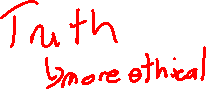 Truth
↳more ethical